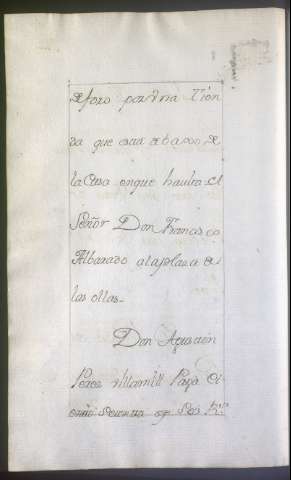 de foro por vna Tien
da que esta debaxo de
la Casa en que hauita el
Señor Don Francisco
Albarado a la plaza de
las ollas-
Don Agustin
Perez Villamill Paga Ci
ento Setenta y Dos R.s